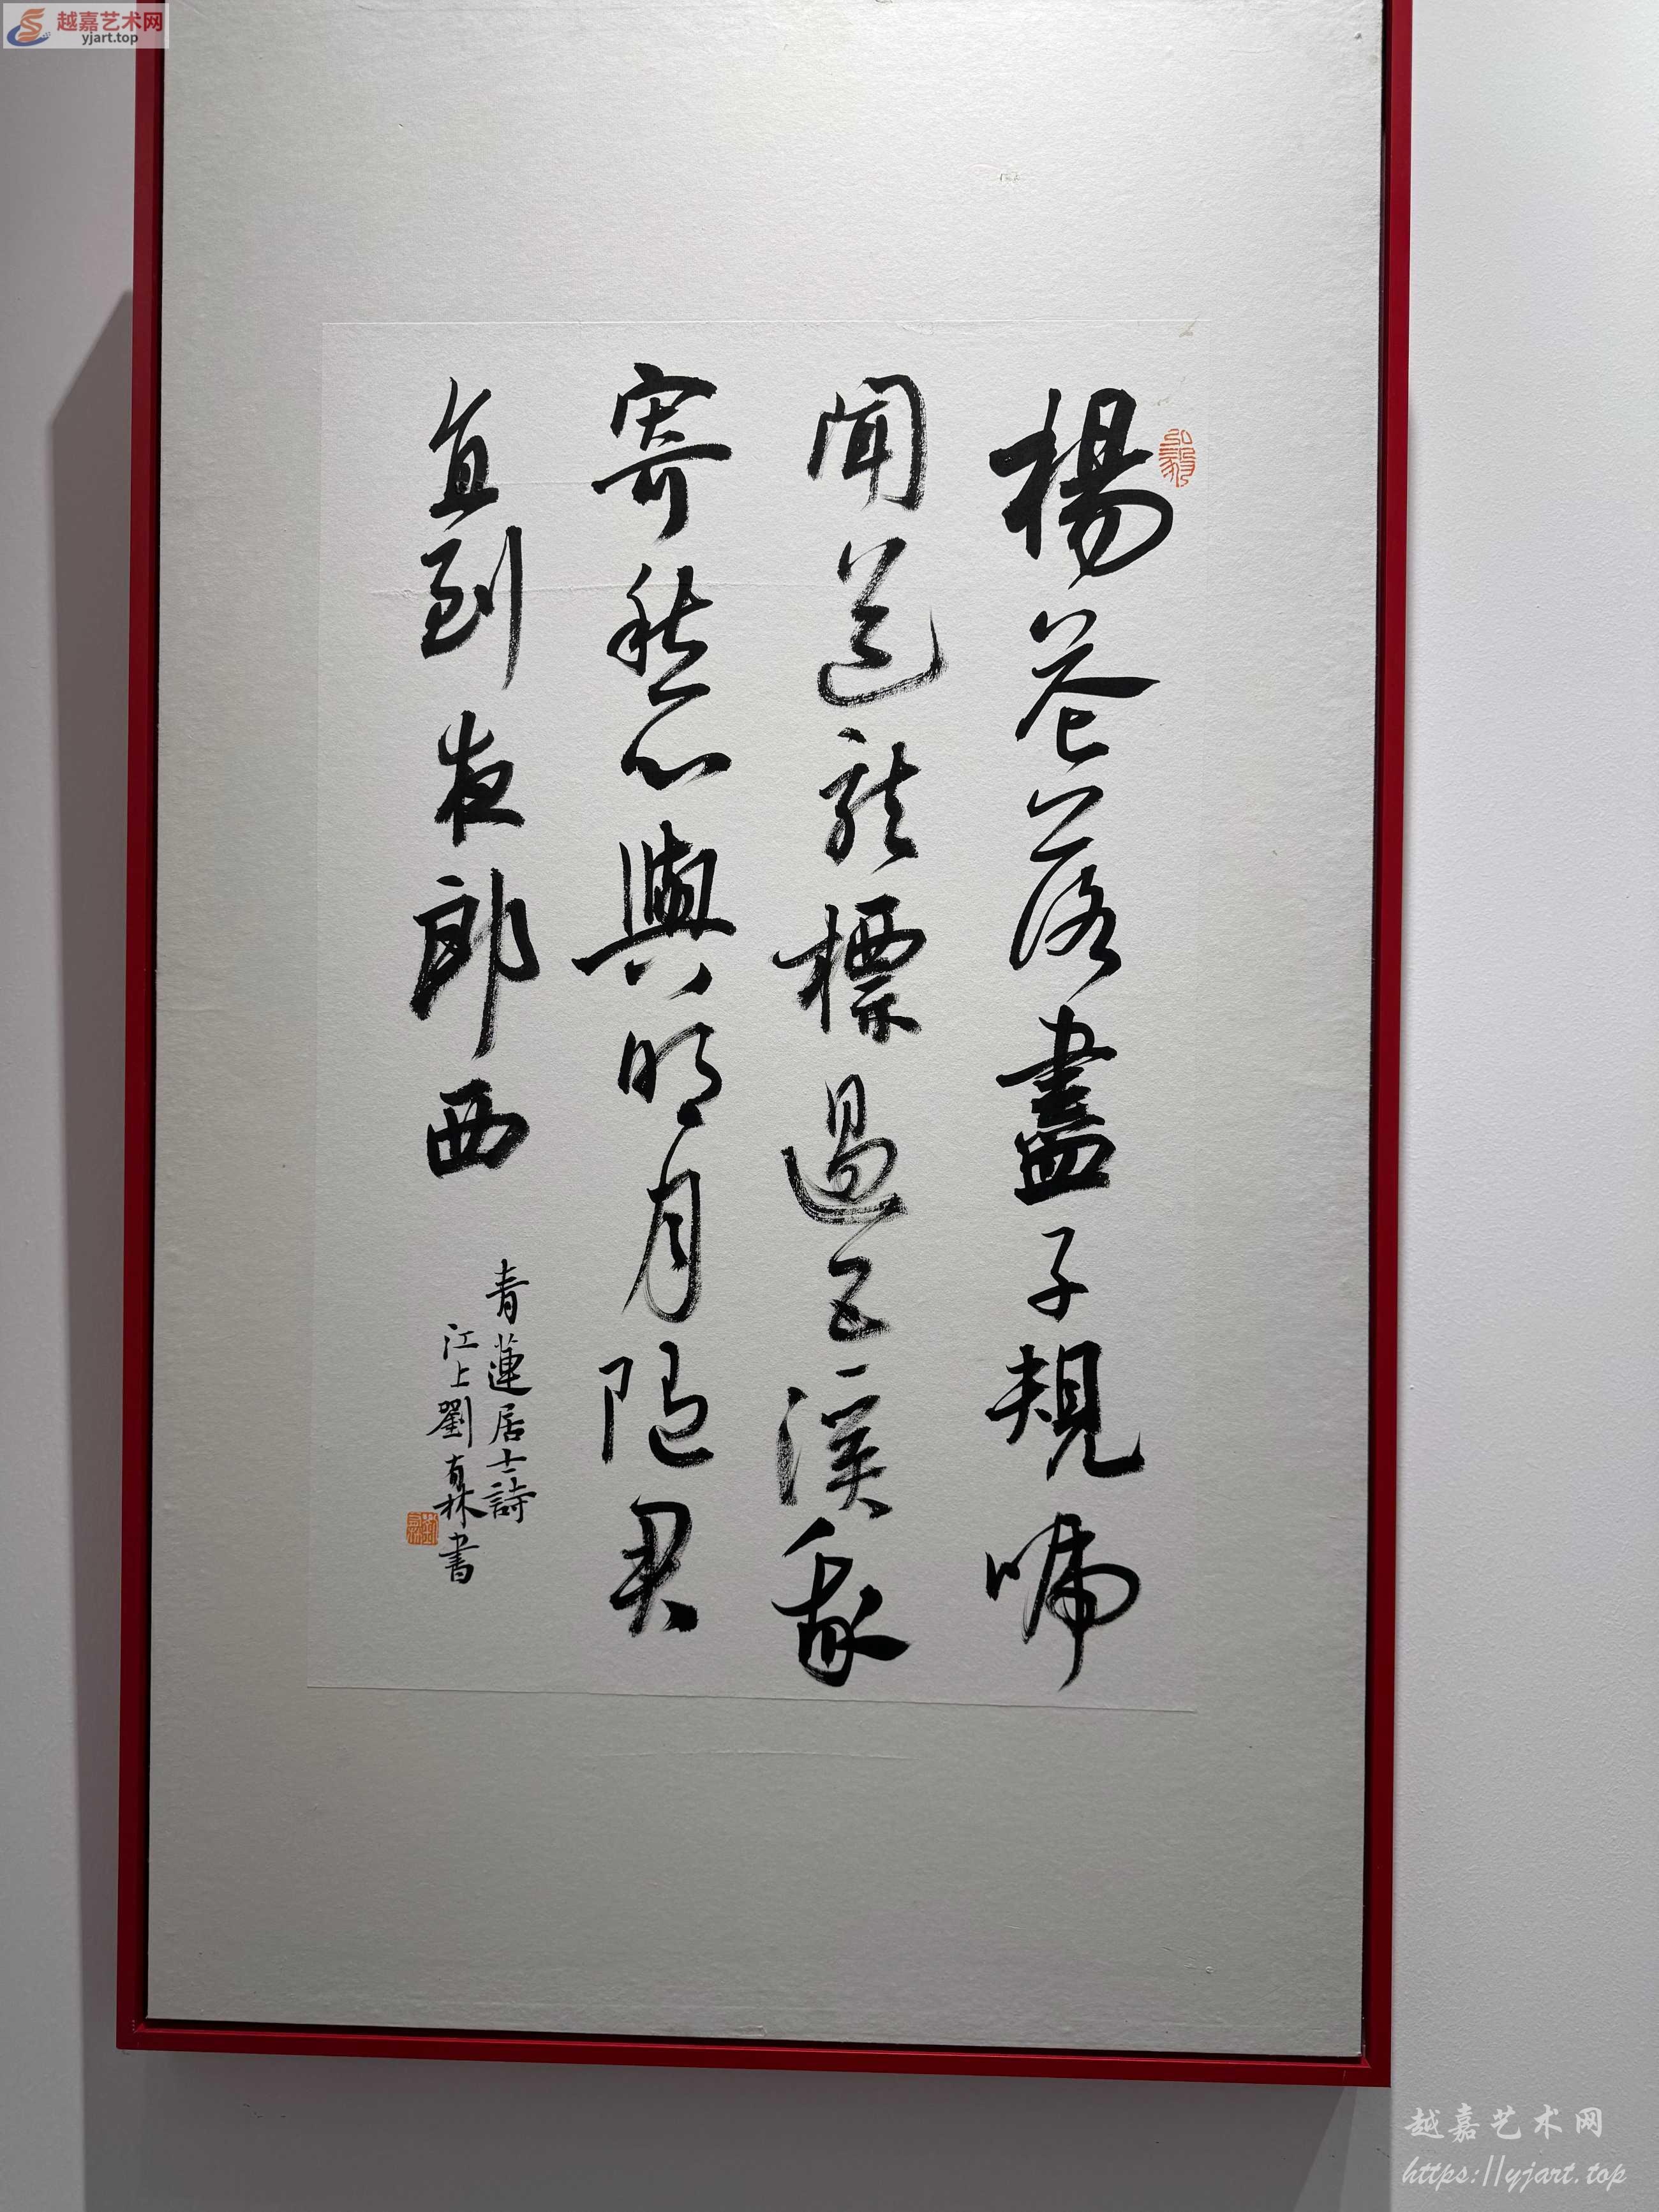 越嘉艺术网
yjart.top
楊花落盡子規啼
聞道龍標過五溪我
寄愁心與明月隨君
直到夜郎西
青蓮居士詩
江上劉有林書
越嘉艺术网
https://yjart.top